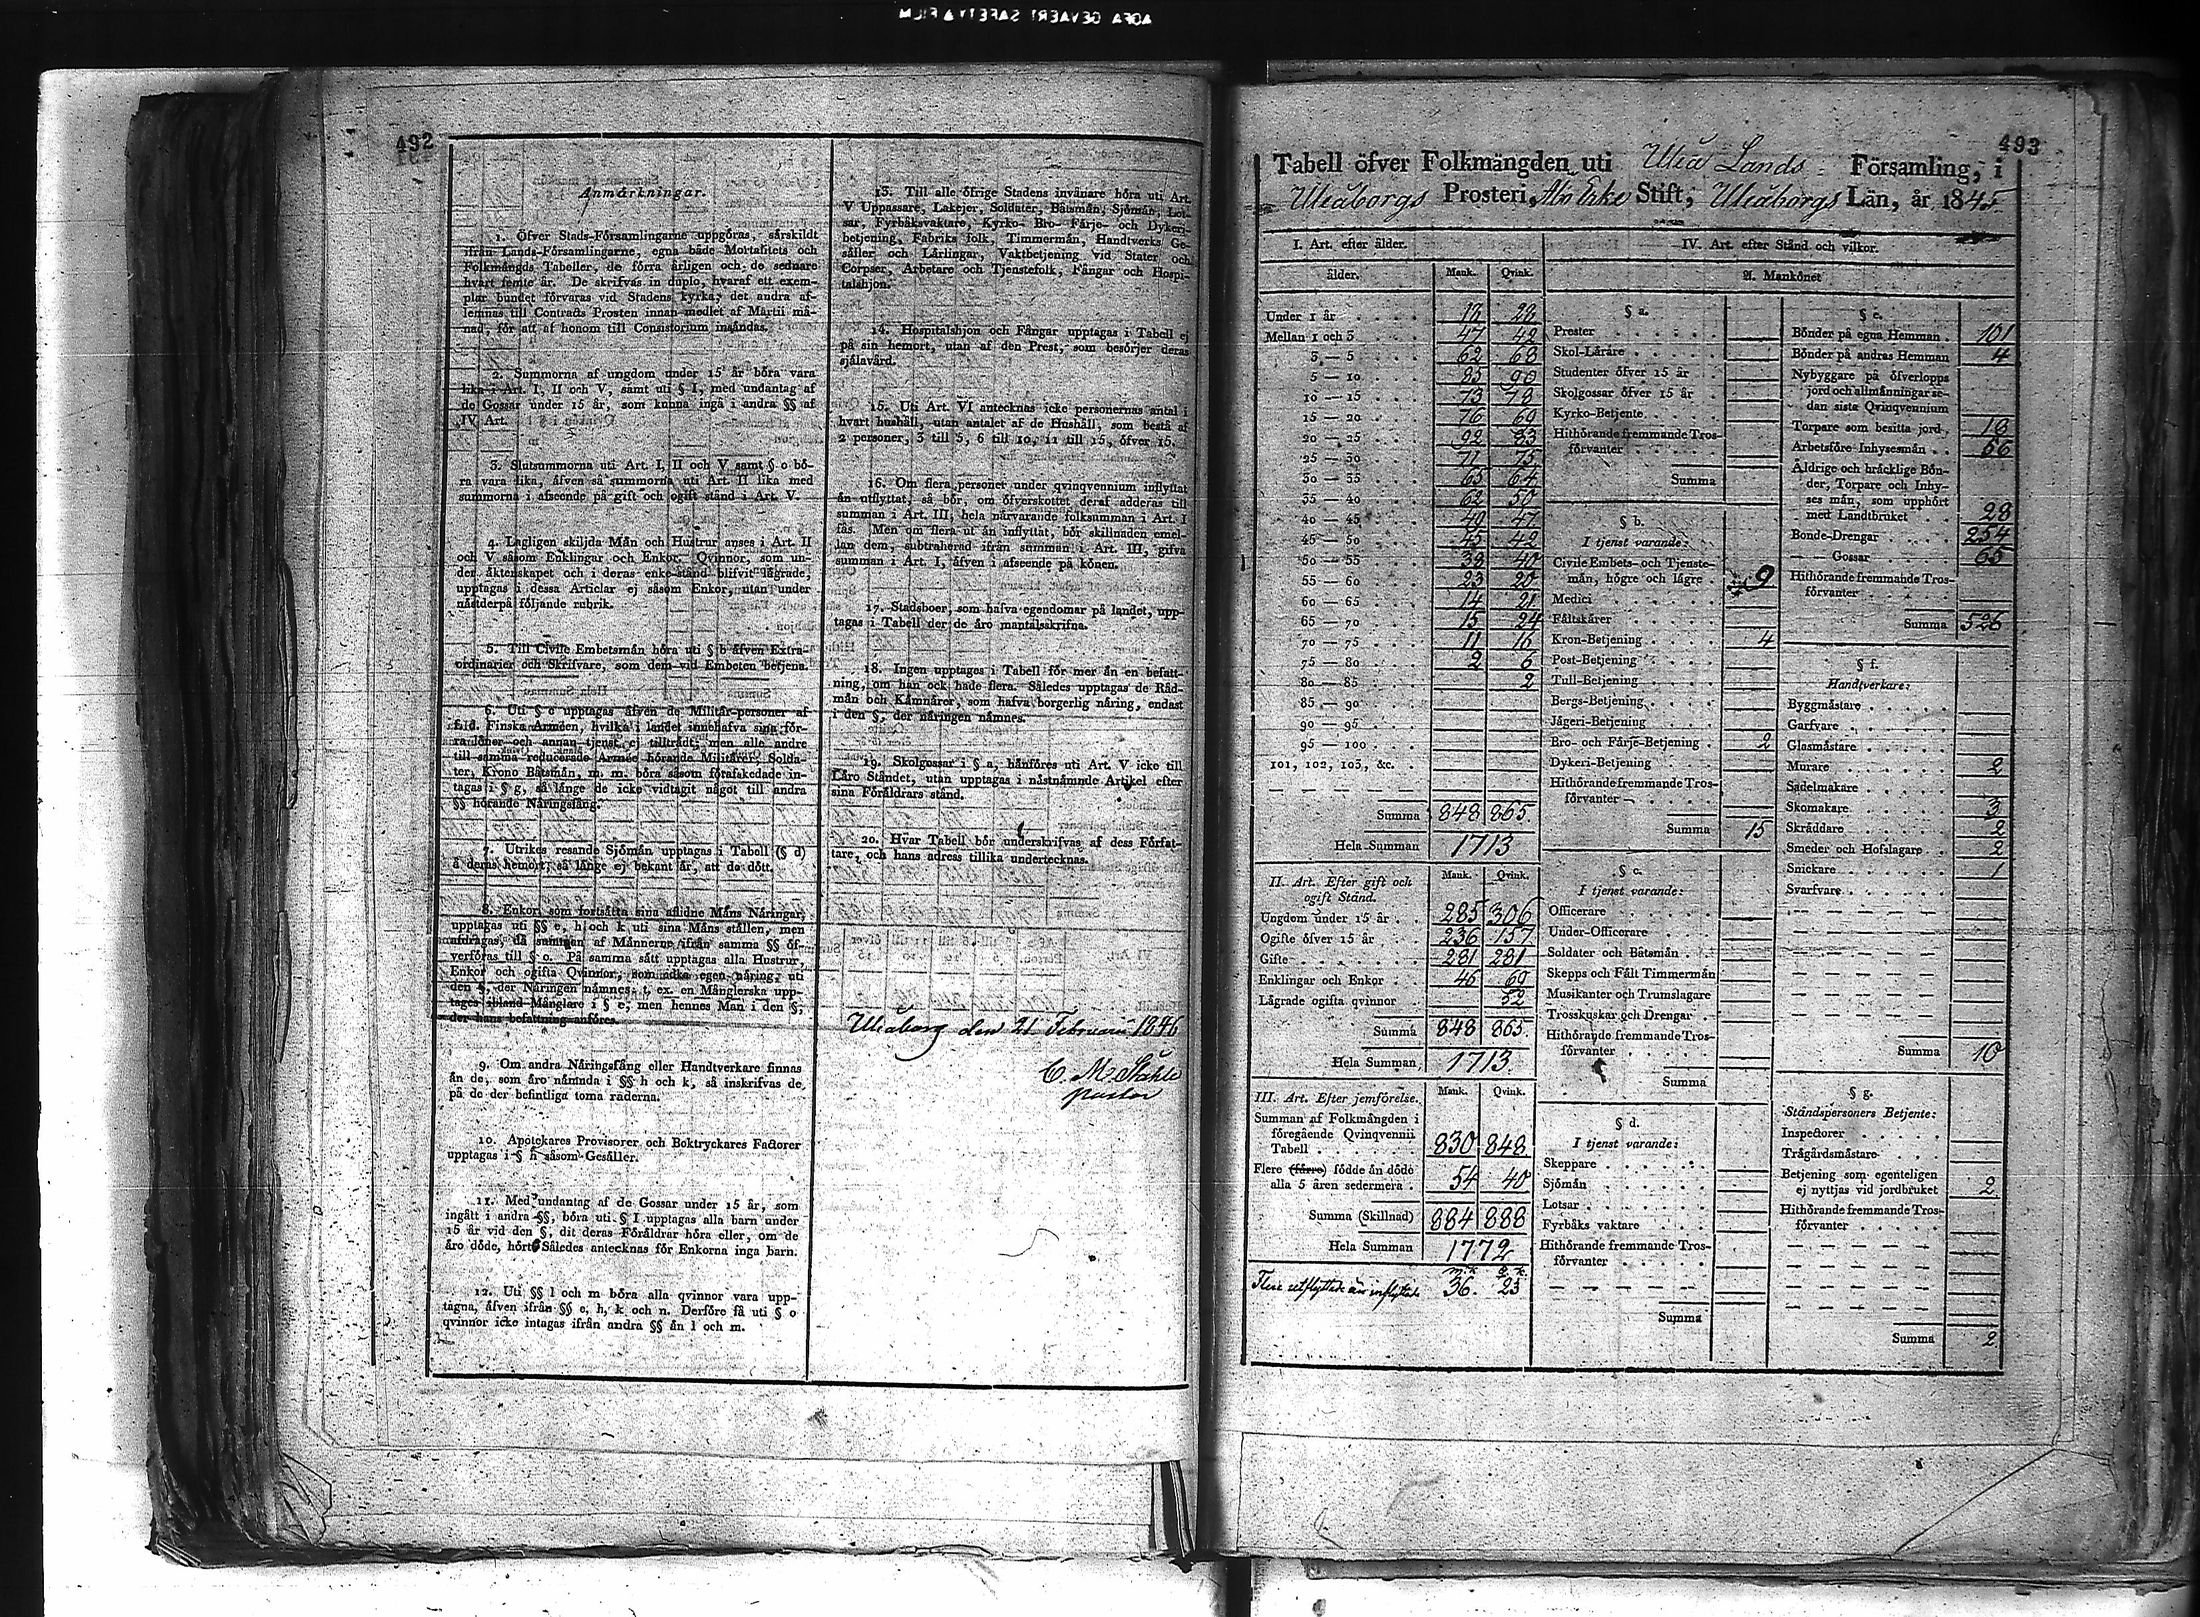 AGFA GEVAERT SAFETY FILM
492
Anmärkningar.
1. Öfver Stads-Församlingarne uppgöras, särskildt
ifrån Lands-Församlingarne, egna både Mortalitets och
Folkmängds Tabeller, de förra årligen och de sednare
hvart femte år. De skrifvas in duplo, hvaraf ett exem-
plar bundet förvaras vid Stadens kyrka, det andra af-
lemnas till Contracts Prosten innan medlet af Martii må-
nad, för att af honom till Consistorium insändas.
2. Summorna af ungdom under 15 år böra vara
lika i Art. I, II och V, samt uti § I, med undantag af
de Gossar under 15 år, som kunna ingå i andra §§ af
IV Art.
3. Slutsummorna uti Art. I, II och V samt § o bö-
ra vara lika, äfven så summorna uti Art. II lika med
summorna i afseende på gift och ogift stånd i Art. V.
4. Lagligen skiljda Män och Hustrur anses i Art. II
och V såsom Enklingar och Enkor. Qvinnor, som un-
der äktenskapet och i deras enke-stånd blifvit lägrade,
upptagas i dessa Articlar ej såsom Enkor, utan under
nästderpå följande rubrik.
5. Till Civile Embetsmän höra uti § b äfven Extra-
ordinarier och Skrifvare, som dem vid Embeten betjena.
6. Uti § c upptagas äfven de Militär-personer af
f.d. Finska Arméen, hvilka i landet innehafva sina för-
ra löner och annan tjenst ej tillträdt; men alle andre
till samma reducerade Armée hörande Militärer, Solda-
ter, Krono Båtsmän, m. m. böra såsom förafskedade in-
tagas i § g, så länge de icke vidtagit något till andra
§§ hörande Näringsfång.
7. Utrikes resande Sjömän upptagas i Tabell (§ d)
å deras hemort, så länge ej bekant är, att de dött.
8. Enkor, som fortsätta sina aflidne Mäns Näringar,
upptagas uti §§ e, h och k uti sina Mäns ställen, men
afdragas, då summan af Männerne ifrån samma §§ öf-
verföras till § o. På samma sätt upptagas alla Hustrur,
Enkor och ogifta Qvinnor, som idka egen näring, uti
den §, der Näringen nämnes, t. ex. en Månglerska upp-
tages ibland Månglare i § e, men hennes Man i den §,
der hans befattning anföres.
9. Om andra Näringsfång eller Handtverkare finnas
än de, som äro nämnda i §§ h och k, så inskrifvas de
på de der befintliga toma räderna.
10. Apotekares Provisorer och Boktryckares Factorer
upptagas i § h såsom Gesäller.
11. Med undantag af de Gossar under 15 år, som
ingått i andra §§, böra uti § I upptagas alla barn under
15 år vid den §, dit deras Föräldrar höra eller, om de
äro döde, hört. Således antecknas för Enkorna inga barn.
12. Uti §§ l och m böra alla qvinnor vara upp-
tagna, äfven ifrån §§ e, h, k och n. Derföre få uti § o
qvinnor icke intagas ifrån andra §§ än l och m.
13. Till alle öfrige Stadens invånare höra uti Art.
V Uppassare, Lakejer, Soldater, Båtsmän, Sjömän, Lot-
sar, Fyrbåksvaktare, Kyrko- Bro- Färje- och Dykeri-
betjening, Fabriks folk, Timmermän, Handtverks Ge-
säller och Lärlingar, Vaktbetjening vid Stater och
Corpser, Arbetare och Tjenstefolk, Fångar och Hospi-
talshjon.
14. Hospitalshjon och Fångar upptagas i Tabell ej
på sin hemort, utan af den Prest, som besörjer deras
själavård.
15. Uti Art. VI antecknas icke personernas antal i
hvart hushåll, utan antalet af de Hushåll, som bestå af
2 personer, 3 till 5, 6 till 10, 11 till 15, öfver 15.
16. Om flera personer under qvinqvennium inflyttat
än utflyttat, så bör, om öfverskottet deraf adderas till
summan i Art. III, hela närvarande folksumman i Art. I
fås. Men om flera ut än inflyttat, bör skillnaden emel-
lan dem, subtraherad ifrån summan i Art. III, gifva
summan i Art. I, äfven i afseende på könen.
17. Stadsboer, som hafva egendomar på landet, upp-
tagas i Tabell der de äro mantalsskrifna.
18. Ingen upptages i Tabell för mer än en befatt-
ning, om han ock hade flera. Således upptagas de Råd-
män och Kämnärer, som hafva borgerlig näring, endast
i den §, der näringen nämnes.
19. Skolgossar i § a, hänföres uti Art. V icke till
Läro Ståndet, utan upptagas i nästnämde Artikel efter
sina Föräldrars stånd.
20. Hvar Tabell bör underskrifvas af dess Förfat-
tare, och hans adress tillika undertecknas.
Uleåborg den 21 Februari 1846
C. M. Ståhle
pastor
493
Tabell öfver Folkmängden uti Uleå Lands Församling, i
Uleåborgs Prosteri, Åbo Erke Stift, Uleåborgs Län, år 1845.
I. Art. efter ålder.
ålder. Mank. Qvink.
Under 1 år 18 28
Mellan 1 och 3 47 42
3 — 5 62 68
5 — 10 85 90
10 — 15 73 78
15 — 20 76 69
20 — 25 92 83
25 — 30 71 75
30 — 35 65 64
35 — 40 62 50
40 — 45 49 47
45 — 50 45 42
50 — 55 38 40
55 — 60 23 20
60 — 65 14 21
65 — 70 15 24
70 — 75 11 16
75 — 80 2 6
80 — 85 2
85 — 90
90 — 95
95 — 100
101, 102, 103, &c.
Summa 848 865.
Hela Summan 1713
II. Art. Efter gift och
ogift Stånd. Mank. Qvink.
Ungdom under 15 år 285 306
Ogifte öfver 15 år 236 157
Gifte 281 281
Enklingar och Enkor 46 69
Lägrade ogifta qvinnor 52
Summa 848 865.
Hela Summan 1713.
III. Art. Efter jemförelse. Mank. Qvink.
Summan af Folkmängden i
föregående Qvinqvennii
Tabell 830 848
Flere (färre) födde än döde
alla 5 åren sedermera 54 40
Summa (Skillnad) 884 888
Hela Summan 1772
m.k. q.k.
Flere utflyttade än inflyttade 36. 23
IV. Art. efter Stånd och vilkor.
A. Mankönet
§ a.
Prester
Skol-Lärare
Studenter öfver 15 år
Skolgossar öfver 15 år
Kyrko-Betjente
Hithörande fremmande Tros-
förvanter
Summa
§ b.
I tjenst varande:
Civile Embets- och Tjenste-
män, högre och lägre 9
Medici
Fältskärer
Kron-Betjening 4
Post-Betjening
Tull-Betjening
Bergs-Betjening
Jägeri-Betjening
Bro- och Färje-Betjening 2
Dykeri-Betjening
Hithörande fremmande Tros-
förvanter
Summa 15
§ c.
I tjenst varande:
Officerare
Under-Officerare
Soldater och Båtsmän
Skepps och Fält Timmermän
Musikanter och Trumslagare
Trosskuskar och Drengar
Hithörande fremmande Tros-
förvanter
Summa
§ d.
I tjenst varande:
Skeppare
Sjömän
Lotsar
Fyrbåks vaktare
Hithörande fremmande Tros-
förvanter
Summa
§ e.
Bönder på egna Hemman 101
Bönder på andras Hemman 4
Nybyggare på öfverlopps
jord och allmänningar se-
dan sista Qvinqvennium
Torpare som besitta jord 18
Arbetsföre Inhysesmän 56
Åldrige och bräcklige Bön-
der, Torpare och Inhy-
ses män, som upphört
med Landtbruket 28
Bonde-Drengar 254
— — Gossar 65
Hithörande fremmande Tros-
förvanter
Summa 526
§ f.
Handtverkare:
Byggmästare
Garfvare
Glasmästare
Murare 2
Sadelmakare
Skomakare 3
Skräddare 2
Smeder och Hofslagare 2
Snickare 1
Svarfvare
Summa 10
§ g.
Ståndspersoners Betjente:
Inspectorer
Trägårdsmästare
Betjening som egenteligen
ej nyttjas vid jordbruket 2
Hithörande fremmande Tros-
förvanter
Summa 2